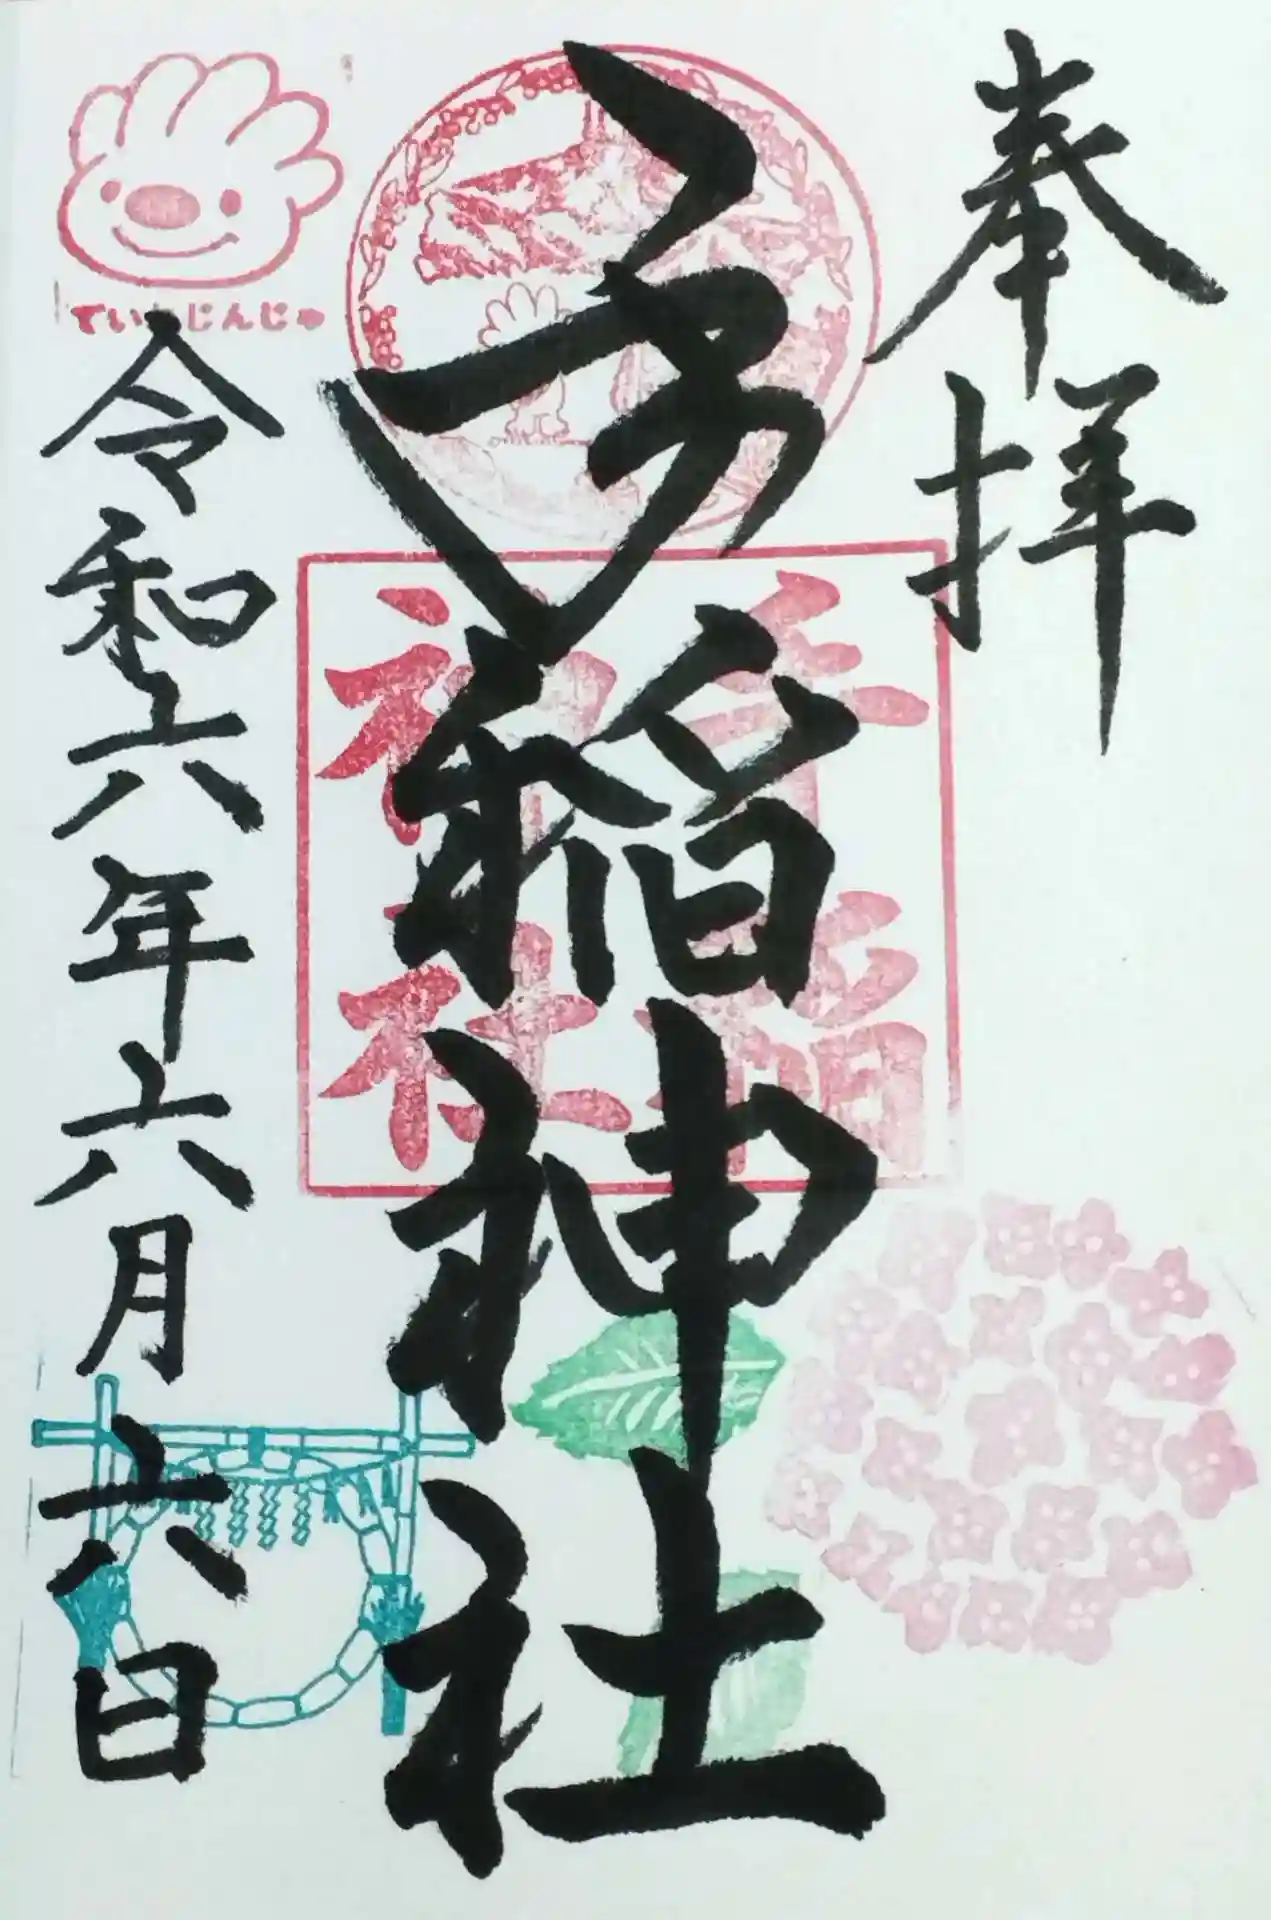 奉拝
手稲神社
手稲
神社
ていねじんじゃ
令和六年六月六日